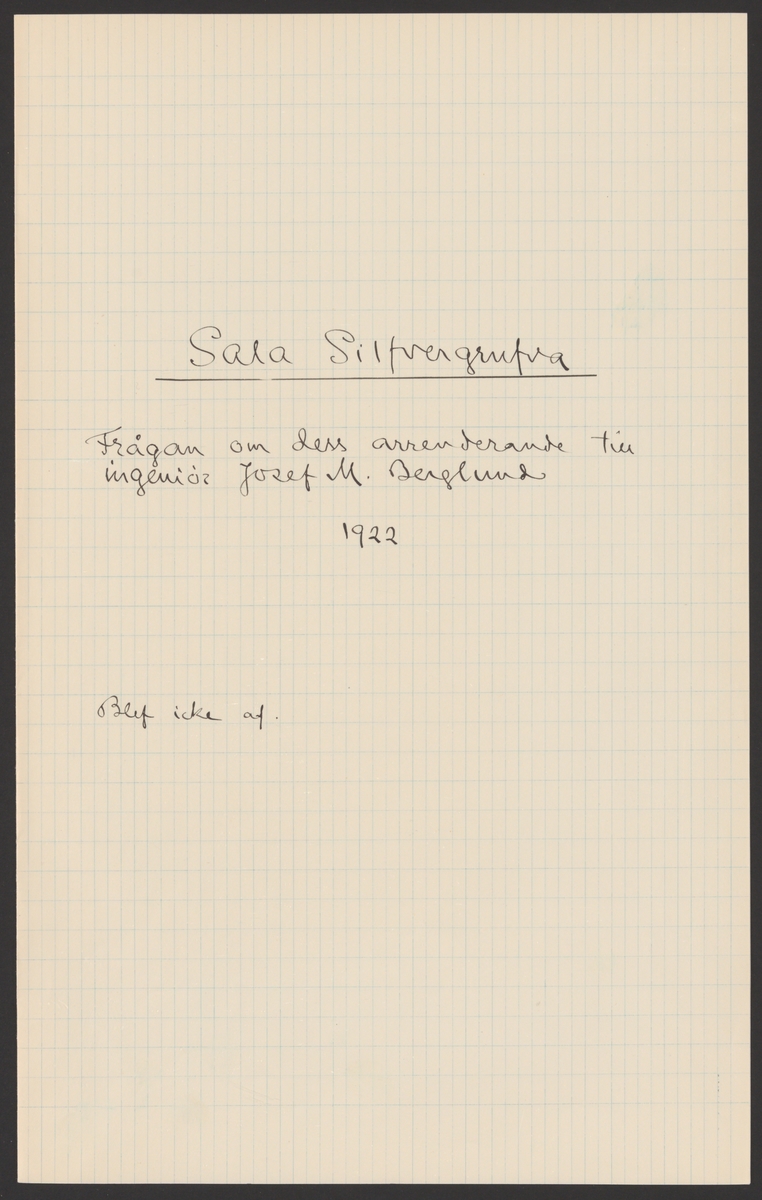 Sala Silfvergrufva
Frågan om dess arrenderande till
ingeniör Josef M. Berglund
1922
Blef icke af.